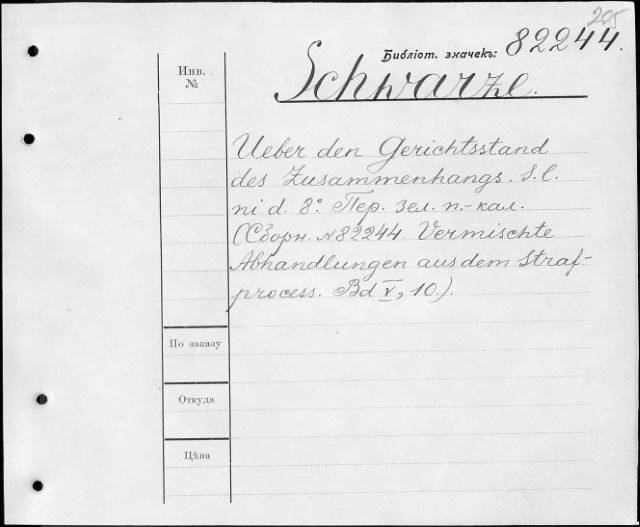 205
Библіот. значекъ: 82244.
Schwarze.
Инв.
№
Ueber den Gerichtsstand
des Zusammenhangs. S. l.
ni d. 8°. Пер. зел. п.-кал.
(Сборн. №82244. Vermischte
Abhandlungen aus dem Straf-
process. Bd V, 10.).
По заказу
Откуда
Цѣна